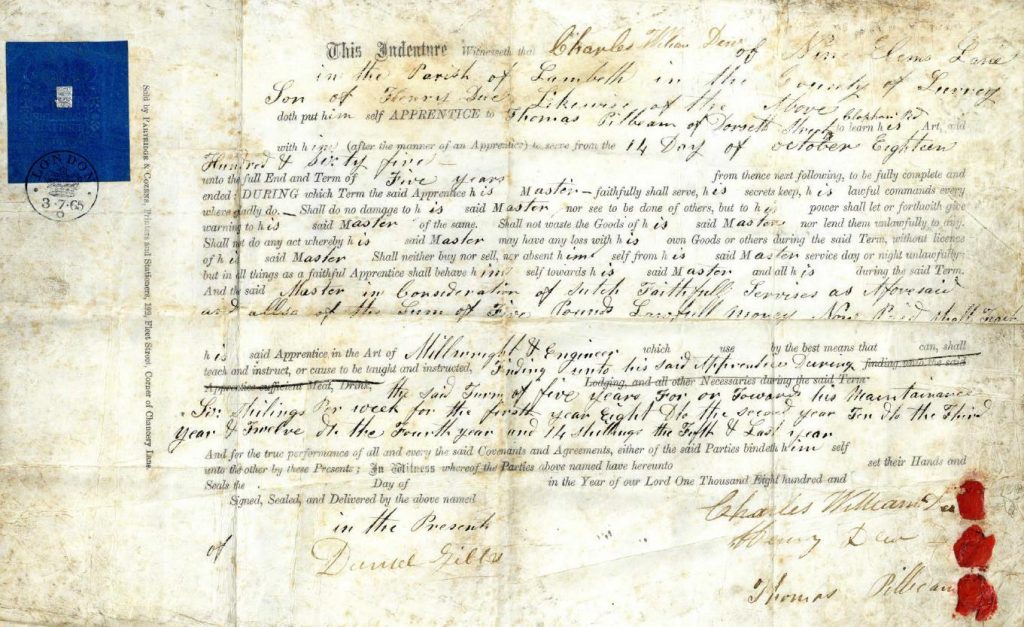 This Indenture Witnesseth that Charles William Dew of Nine Elms Lane
in the Parish of Lambeth in the County of Surrey
Son of Henry Dew Likewise of the Above
Clapham Rd
doth put him self APPRENTICE to Thomas Pilbeam of Dorsett Street to learn his Art, and
with him (after the manner of an Apprentice) to serve from the 14 Day of October Eighteen
Hundred & Sixty five —
unto the full End and Term of Five years from thence next following, to be fully complete and
ended: DURING which Term the said Apprentice his Master — faithfully shall serve, his secrets keep, his lawful commands every
where gladly do. — Shall do no damage to his said Master nor see to be done of others, but to his power shall let or forthwith give
warning to his said Master of the same. Shall not waste the Goods of his said Master nor lend them unlawfully to any.
Shall not do any act whereby his said Master may have any loss with his own Goods or others during the said Term, without licence
of his said Master Shall neither buy nor sell, nor absent him self from his said Master service day or night unlawfully:
but in all things as a faithful Apprentice shall behave him self towards his said Master and all his during the said Term.
And the said Master in Consideration of Sutch Faithfull Servises as Aforesaid
and allso of the Sum of Five Pounds Lawfull money Now Paid shall Teach
his said Apprentice in the Art of Millwright & Engineer which use by the best means that can, shall
teach and instruct, or cause to be taught and instructed, Finding unto his said Apprentice During finding unto the said
Apprentice sufficient Meat, Drink, Lodging, and all other Necessaries during the said Term
the said Turm of five years For or Towards his Maintainance
Six shilings Per week for the first year Eight Dto the second year Ten dto the Third
Year & Twelve dto the Fourth year and 14 shillings the Fifth & Last year
And for the true performance of all and every the said Covenants and Agreements, either of the said Parties bindeth him self
unto the other by these Presents; In Witness whereof the Parties above named have hereunto set their Hands and
Seals the Day of in the Year of our Lord One Thousand Eight hundred and
Signed, Sealed, and Delivered by the above named
in the Presents
of
Daniel Gibbs
Charles William Dew
Henry Dew
Thomas Pilbeam
Sold by PARTRIDGE & COZENS, Printers and Stationers, 192, Fleet Street, Corner of Chancery Lane
LONDON
3·7·65